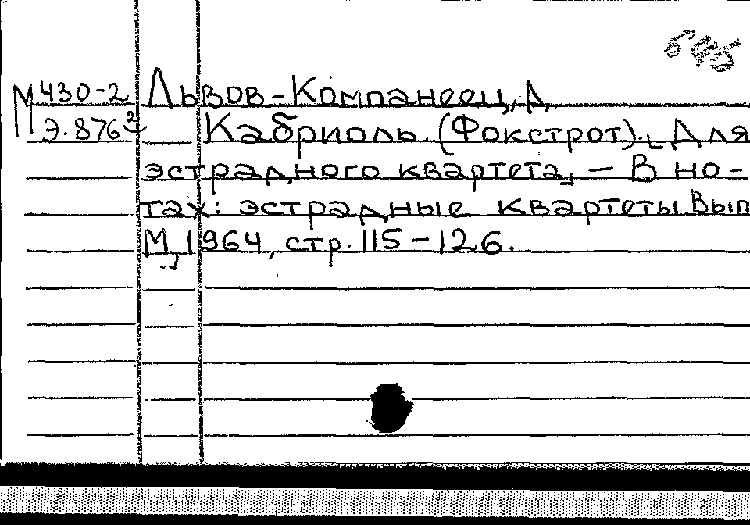 М 430-2 Львов-Компанеец, Д
Э.876² Кабриоль (Фокстрот). [Для
эстрадного квартета] — В но-
тах: эстрадные квартеты Вып
М, 1964, стр. 115-126.